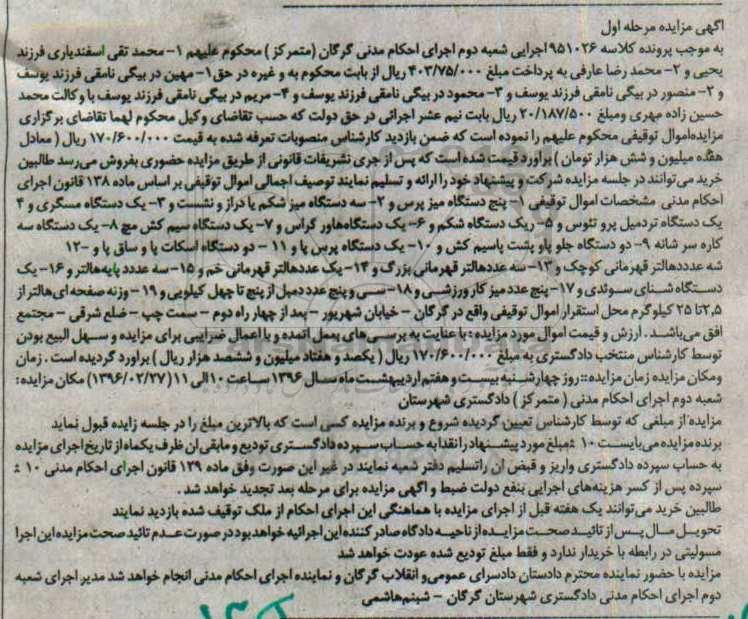 آگهی مزایده مرحله اول
به موجب پرونده کلاسه ۹۵۱۰۲۶ اجرایی شعبه دوم اجرای احکام مدنی گرگان (متمرکز) محکوم علیهم ۱- محمد تقی اسفندیاری فرزند
یحیی و ۲- محمد رضا عارفی به پرداخت مبلغ ۴۰۳/۷۵/۰۰۰ ریال از بابت محکوم به و غیره در حق ۱- مهین در بیگی نامقی فرزند یوسف
و ۲- منصور در بیگی نامقی فرزند یوسف و ۳- محمود در بیگی نامقی فرزند یوسف و ۴- مریم در بیگی نامقی فرزند یوسف با وکالت محمد
حسین زاده مهری ومبلغ ۲۰/۱۸۷/۵۰۰ ریال بابت نیم عشر اجرائی در حق دولت که حسب تقاضای وکیل محکوم لهما تقاضای برگزاری
مزایده‌اموال توقیفی محکوم علیهم را نموده است که ضمن بازدید کارشناس منصوبات تعرفه شده به قیمت ۱۷۰/۶۰۰/۰۰۰ ریال (معادل
هفده میلیون و شش هزار تومان) براورد قیمت شده است که پس از جری تشریفات قانونی از طریق مزایده حضوری بفروش می‌رسد طالبین
خرید می‌توانند در جلسه مزایده شرکت و پیشنهاد خود را ارائه و تسلیم نمایند توصیف اجمالی اموال توقیفی بر اساس ماده ۱۳۸ قانون اجرای
احکام مدنی مشخصات اموال توقیفی ۱- پنج دستگاه میز پرس و ۲- سه دستگاه میز شکم یا دراز و نشست و ۳- یک دستگاه مسگری و ۴
یک دستگاه تردمیل پرو تئوس و ۵- ریک دستگاه شکم و ۶- یک دستگاه‌هاور گراس و ۷- یک دستگاه سیم کش مچ ۸- یک دستگاه سه
کاره سر شانه ۹- دو دستگاه جلو پاو پشت پاسیم کش و ۱۰- یک دستگاه پرس پا و ۱۱ - دو دستگاه اسکات پا و ساق پا و -۱۲
شه عدددهالتر قهرمانی کوچک و ۱۳- سه عددهالتر قهرمانی بزرگ و ۱۴- یک عددهالتر قهرمانی خم و ۱۵- سه عددد پایه‌هالتر و ۱۶- یک
دستگاه شنای سوئدی و ۱۷- پنج عدد میز کار ورزشی و ۱۸- سی و پنج عدد دمبل از پنج تا چهل کیلویی و ۱۹ - وزنه صفحه ای‌هالتر از
۲,۵تا ۲۵ کیلوگرم محل استقرار اموال توقیفی واقع در گرگان - خیابان شهریور - بعد از چهار راه دوم - سمت چپ - ضلع شرقی - مجتمع
افق می‌باشد . ارزش و قیمت اموال مورد مزایده : با عنایت به پرسی‌های بعمل اتمده و با اعمال ضرایبی برای مزایده و سهل البیع بودن
توسط کارشناس منتخب دادگستری به مبلغ ۱۷۰/۶۰۰/۰۰۰ ریال (یکصد و هفتاد میلیون و ششصد هزار ریال) براورد گردیده است . زمان
ومکان مزایده زمان مزایده :: روز چهارشنبه بیست و هفتم اردیبهشت ماه سال ۱۳۹۶ ساعت ۱۰ الی ۱۱ (۱۳۹۶/۰۲/۲۷) مکان مزایده :
شعبه دوم اجرای احکام مدنی (متمرکز) دادگستری شهرستان
مزایده از مبلغی که توسط کارشناس تعیین گردیده شروع و برنده مزایده کسی است که بالاترین مبلغ را در جلسه زایده قبول نماید
برنده مزایده می‌بایست ۱۰ ٪مبلغ مورد پیشنهاد را نقدا به حساب سپرده دادگستری تودیع و مابقی ان ظرف یکماه از تاریخ اجرای مزایده
به حساب سپرده دادگستری واریز و قبض ان راتسلیم دفتر شعبه نمایند در غیر این صورت وفق ماده ۱۲۹ قانون اجرای احکام مدنی ۱۰ ٪
سپرده پس از کسر هزینه‌های اجرایی بنفع دولت ضبط و اگهی مزایده برای مرحله بعد تجدید خواهد شد .
طالبین خرید می‌توانند یک هفته قبل از اجرای مزایده با هماهنگی این اجرای احکام از ملک توقیف شده بازدید نمایند
تحویل مال پس از تائید صحت مزایده از ناحیه دادگاه صادر کننده این اجرائیه خواهد بود در صورت عدم تائید صحت مزایده این اجرا
مسولیتی در رابطه با خریدار ندارد و فقط مبلغ تودیع شده عودت خواهد شد
مزایده با حضور نماینده محترم دادستان دادسرای عمومی‌و انقلاب گرگان و نماینده اجرای احکام مدنی انجام خواهد شد مدیر اجرای شعبه
دوم اجرای احکام مدنی دادگستری شهرستان گرگان - شبنم‌هاشمی